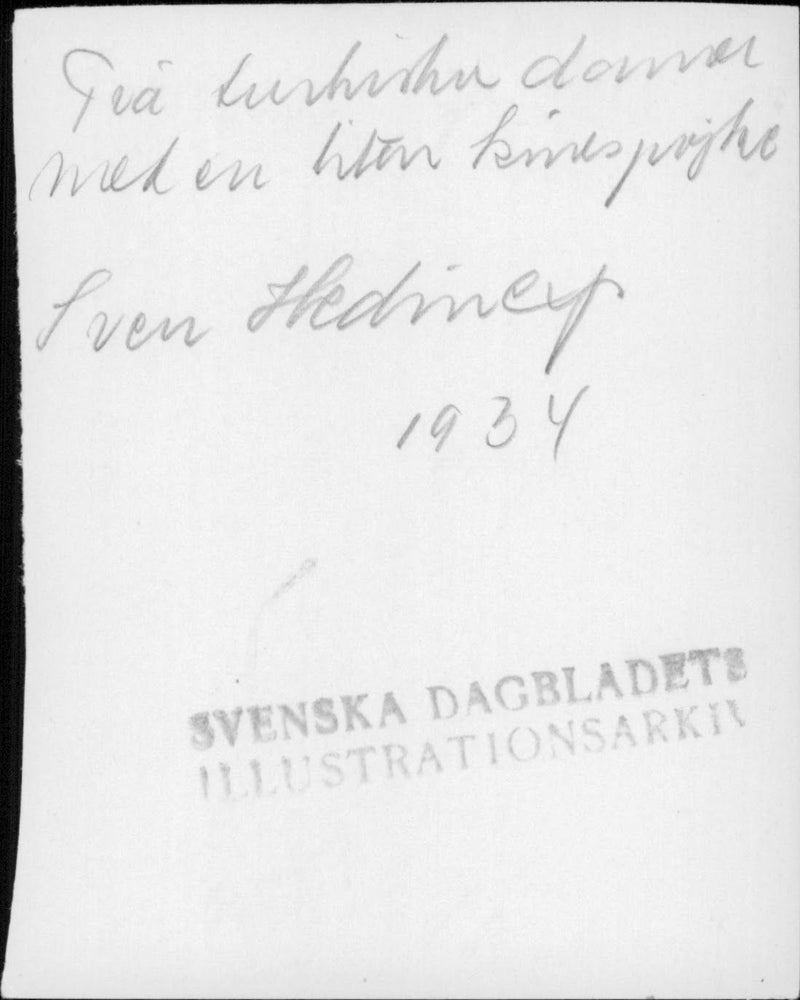 Två turkiska damer
med en liten kinespojke
Sven Hedinexp
1934
SVENSKA DAGBLADETS
ILLUSTRATIONSARKIV